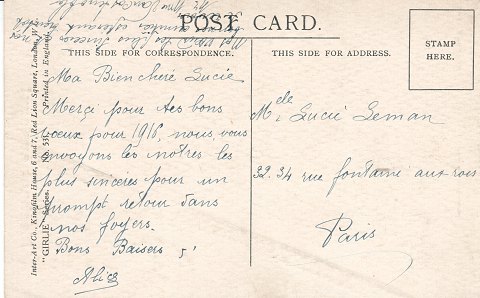 POST CARD.
THIS SIDE FOR CORRESPONDENCE.
THIS SIDE FOR ADDRESS.
STAMP
HERE.
Ma Bien chéré Lucie
Merçi pour tes bons
vœux pour 1918, nous vous
envoyons les nôtres les
plus sincères pour un
prompt retour dans
nos foyers.
Bons Baisers
Alice
Melle Lucie Leman
32. 34 rue fontaine aux rois
Paris
Inter-Art Co., Kingfilm House, 6 and 7, Red Lion Square, London, W.
"GIRLIE" Series. No. 531. Printed in England.